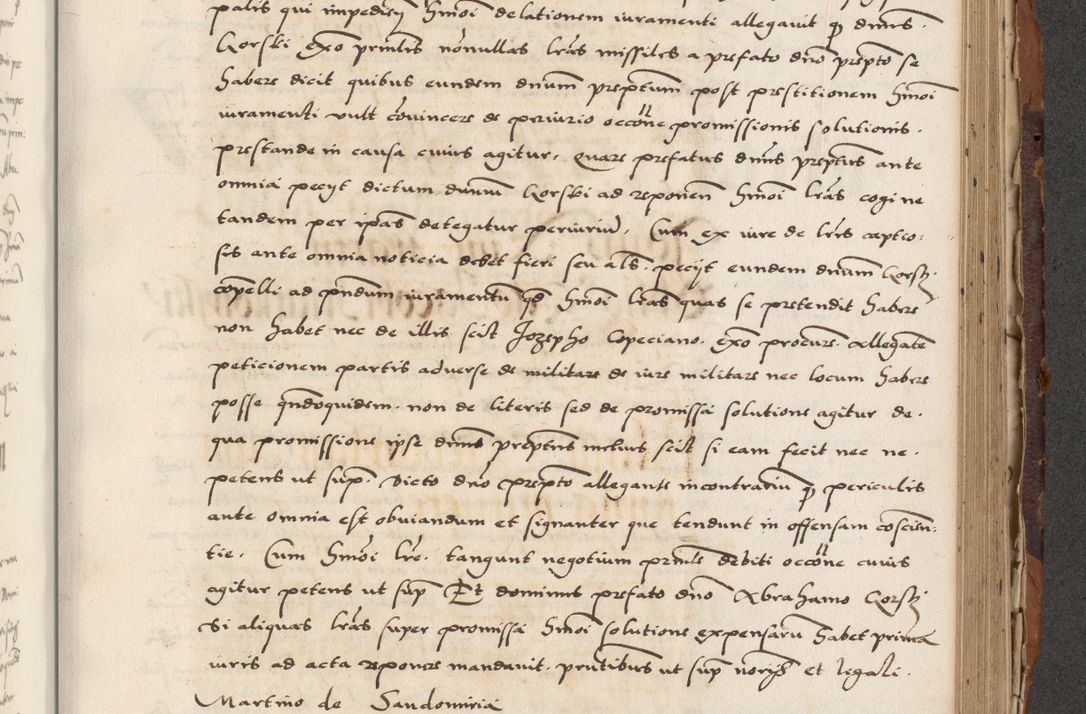 palis qui impedien hmoi delationem iuramenti allegavit q dnus
Gorski exo prmlis nonnullas lras missiles a prefato dno prepto se
habere dicit quibus eundem dnum preptum post prestitionem hmoi
iuramenti vult convincere de periurio occone promissionis solutionis.
prestande in causa cuius agitur, quare prefatus dnus preptus ante
omnia peciit dictum dnum Gorski ad reponen hmoi lras cogi ne
tandem per ipas detegatur periuriu. Cum ex iure de lris captio-
sis ante omnia noticia debet fieri seu als. peciit eundem dnum Gorski
copelli ad pndum iuramentu qd hmoi lras quas se pretendit habere
non habet nec de illis scit Jozepho Copeciano. exo procure. allegate
peticionem partis adverse de militare de iure militare nec locum habere
posse qndoquidem. non de literis sed de promissa solutione agitur de.
qua promissione ipse dnus preptus melius scit si eam fecit nec ne.
petens ut sup. Dicto dno prepto allegante incontrariu q periculis
ante omnia est obviandum et signanter que tendunt in offensam coscien-
tie. Cum hmoi lre. tangunt negotium prmlis debiti occone cuius
agitur petens ut sup Et dominus prefato dno Abrahamo Gorski
Si aliquas lras super promissa hmoi solutione expensaru habet prima
iuris ad acta reponere mandavit. pntibus ut sup noriis et legali.
Martino de Sandomiria